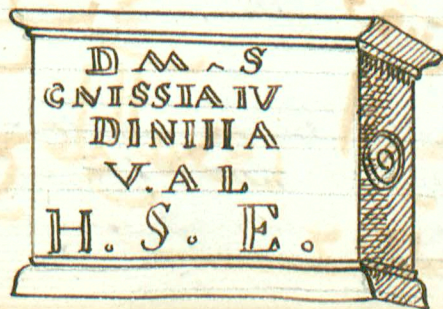 D M ^ S
CNISSIAIV
DINIIIA
V. A L
H. S. E.